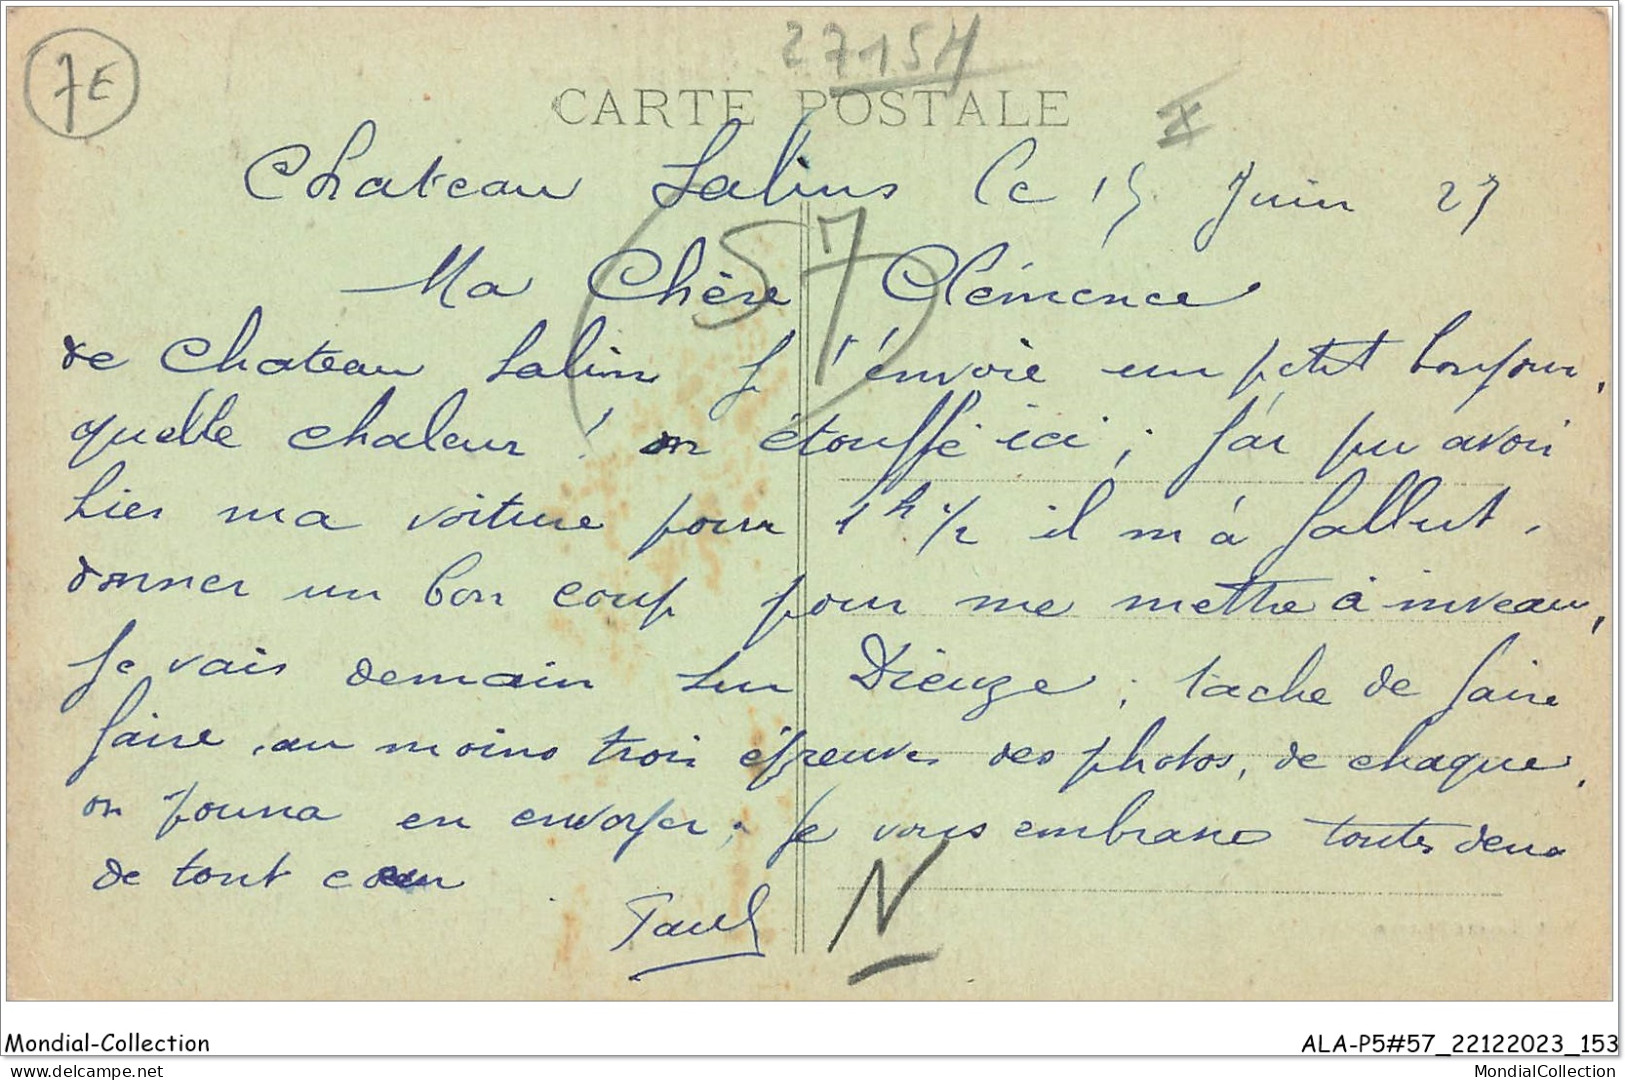 7E
27154
CARTE POSTALE
Chateau Salins le 15 Juin 27
(57)
Ma Chère Clémence
de Chateau Salins je t'envoie un petit bonjour,
quelle chaleur ! on étouffe ici ; j'ai pu avoir
hier ma voiture pour 1h 1/2 il m'a fallut
donner un bon coup pour me mettre à niveau,
je vais demain sur Dieuze ; tache de faire
faire au moins trois épreuves des photos, de chaque,
on pourra en envoyer ; je vous embrasse toutes deux
de tout coeur
Paul
N
Mondial-Collection
ALA-P5#57_22122023_153
delcampe.net
MondialCollection